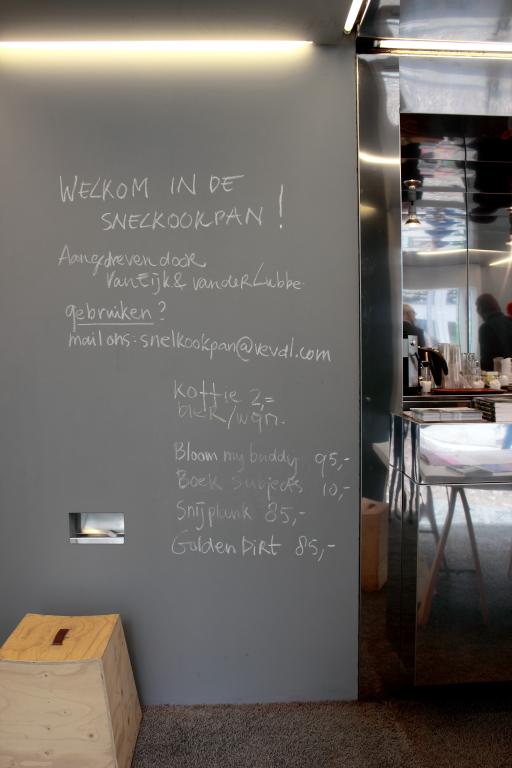 WELKOM IN DE
SNELKOOKPAN!
Aangedreven door
Van Eijk & van der Lubbe.
gebruiken?
mail ons: snelkookpan@vevdl.com
Koffie 2,=
bier/wijn.
Bloom my buddy 95,-
Boek Subjects 10,-
Snijplank 85,-
Golden Dirt 85,-